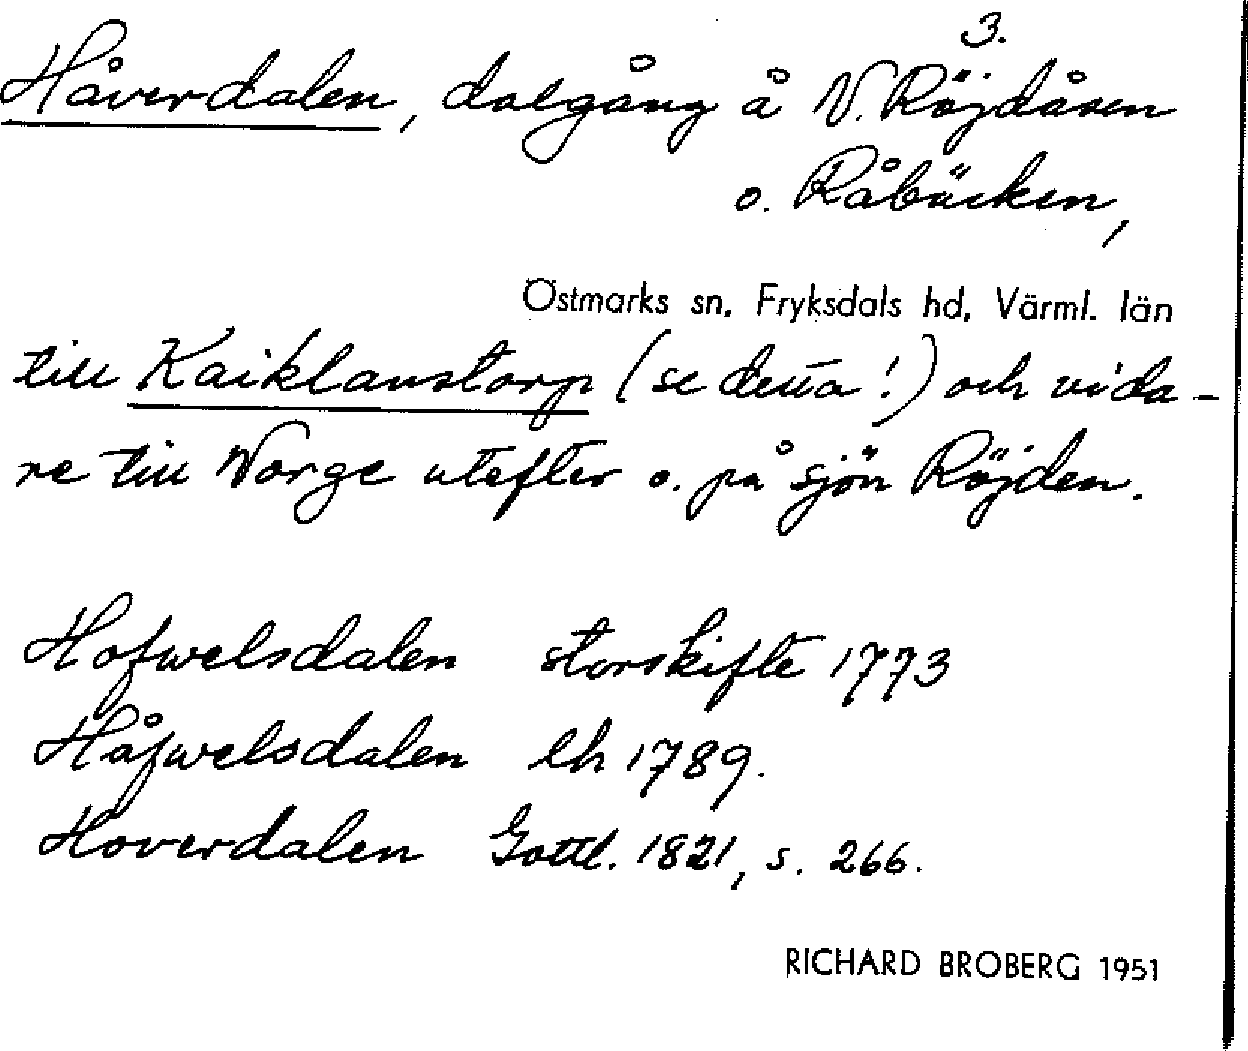 3.
Håverdalen, dalgång å V. Röjdåsen
o. Råbäcken,
Östmarks sn, Fryksdals hd, Värml. län
till Kaiklaustorp (se detta!) och vida-
re till Norge utefter o. på sjön Röjden.
Hofwelsdalen storskifte 1773
Håfwelsdalen lh 1789.
Hoverdalen Gottl. 1821, s. 266.
RICHARD BROBERG 1951